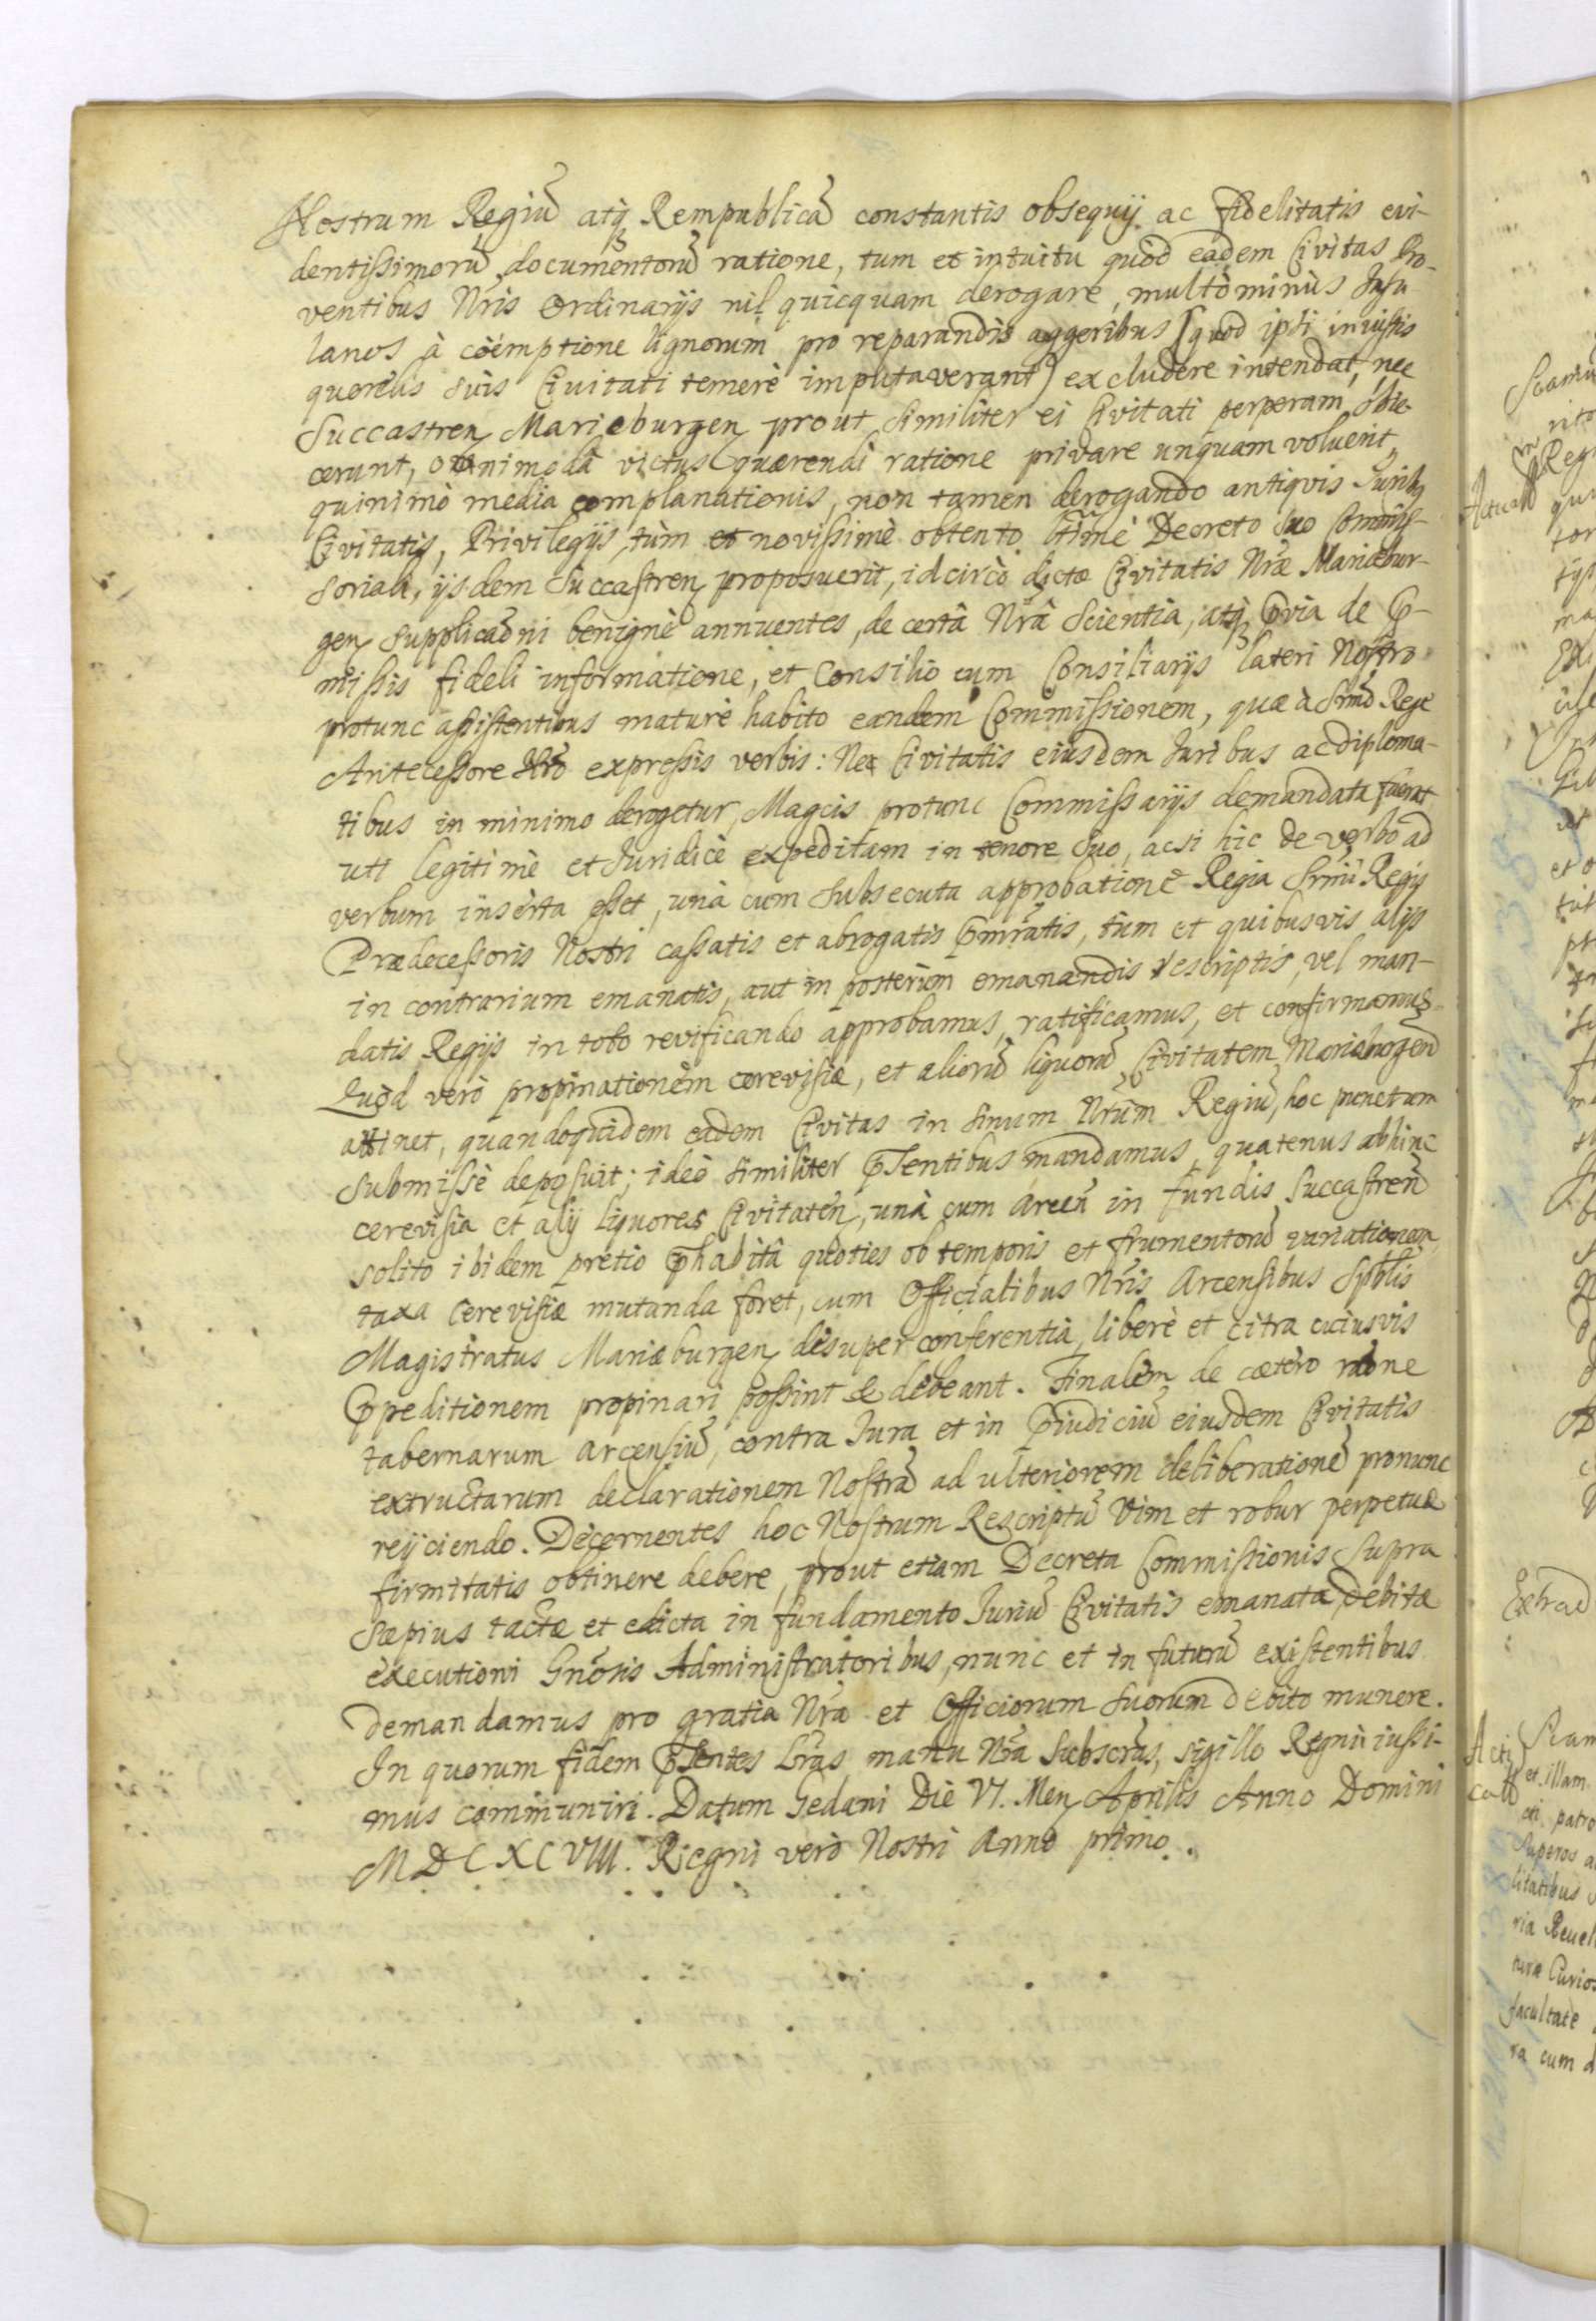 Nostrum Regiũ atq́ Rempublicã constantis obsequij ac fidelitatis evi-
dentissimorũ documentorũ ratione, tum et intuitu quòd eadem Civitas Pro-
ventibus Nris Ordinarijs nil quicquam derogare, multò minùs Insu
lanos à coëmptione lignorum pro reparandis aggeribus [quod ipsi iniustis
querelis suis Civitati temerè imputaverant) excludere intendat, nec
Succastren Marieburgen prout similiter ei Civitati perperam obie-
cerunt, omnimodâ victus quærendi ratione privare unquam voluerit,
quinimò media complanationis, non tamen derogando antiqvis Juribq
Civitatis, Privilegijs, tùm et novissimè obtento ltimè Decreto suo Commis-
soriali, ijsdem Succastren proposuerit, idcircò dictæ Civitatis Nræ Mariæbur-
gen supplicaõni benignè annuentes, de certâ Nrâ Scientia, atq́ pvia de p-
missis fideli informatione, et Consilio cum Consiliarijs lateri Nostro
protunc assistentibus maturè habito eandem Commissionem, quæ à Srmo Rege
Antecessore Nro expressis verbis: Nec Civitatis eiusdem Juribus ac diploma-
tibus in minimo derogetur, Magcis protunc Commissarijs demandata fuerat
uti legitimè et Juridicè expeditam in tenore suo, acsi hic de verbo ad
verbum inserta esset, unà cum subsecuta approbatione Regia Srmi Regis
Prædecessoris Nostri cassatis et abrogatis pmratis, tum et quibusvis alijs
in contrarium emanatis, aut in posterum emanandis rescriptis, vel man-
datis Regijs in toto revificando approbamus, ratificamus, et confirmamus.
Quòd verò propinationem cerevisiæ, et aliorũ liquorũ Civitatem Mariæburgen
attinet, quandoquidem eadem Civitas in sinum Nrum Regiũ, hoc punctum
submissè deposuit; ideò similiter psentibus mandamus, quatenus abhinc
cerevisia et alij liquores Civitaten, unà cum arcen in fundis Succastren
solito ibidem pretio phabitâ quoties ob temporis et frumentorũ variationem
taxa cerevisiæ mutanda foret, cum Officialibus Nris Arcensibus Spblis
Magistratus Mariæburgen desuper conferentia, liberè et citra cuiusvis
ppeditionem propinari possint & debeant. Finalem de cætero raõne
tabernarum arcensiũ, contra Jura et in piudiciũ eiusdem Civitatis
extructarum declarationem Nostrã ad ulteriorem deliberationẽ pronunc
reijciendo. Decernentes hoc Nostrum Rescriptũ Vim et robur perpetuæ
firmitatis obtinere debere, prout etiam Decreta Commissionis supra
sæpius tactæ et edicta in fundamento Juriũ Civitatis emanata, debitæ
executioni Gnosis Administratoribus, nunc et in futurũ existentibus
demandamus pro gratia Nra et Officiorum suorum debito munere.
In quorum fidem psentes Lras manu Nra Subscras, sigillo Regni iussi-
mus communiri. Datum Gedani Die VI. Men Aprilis Anno Domini
MDCXCVIII. Regni verò Nostri Anno primo.